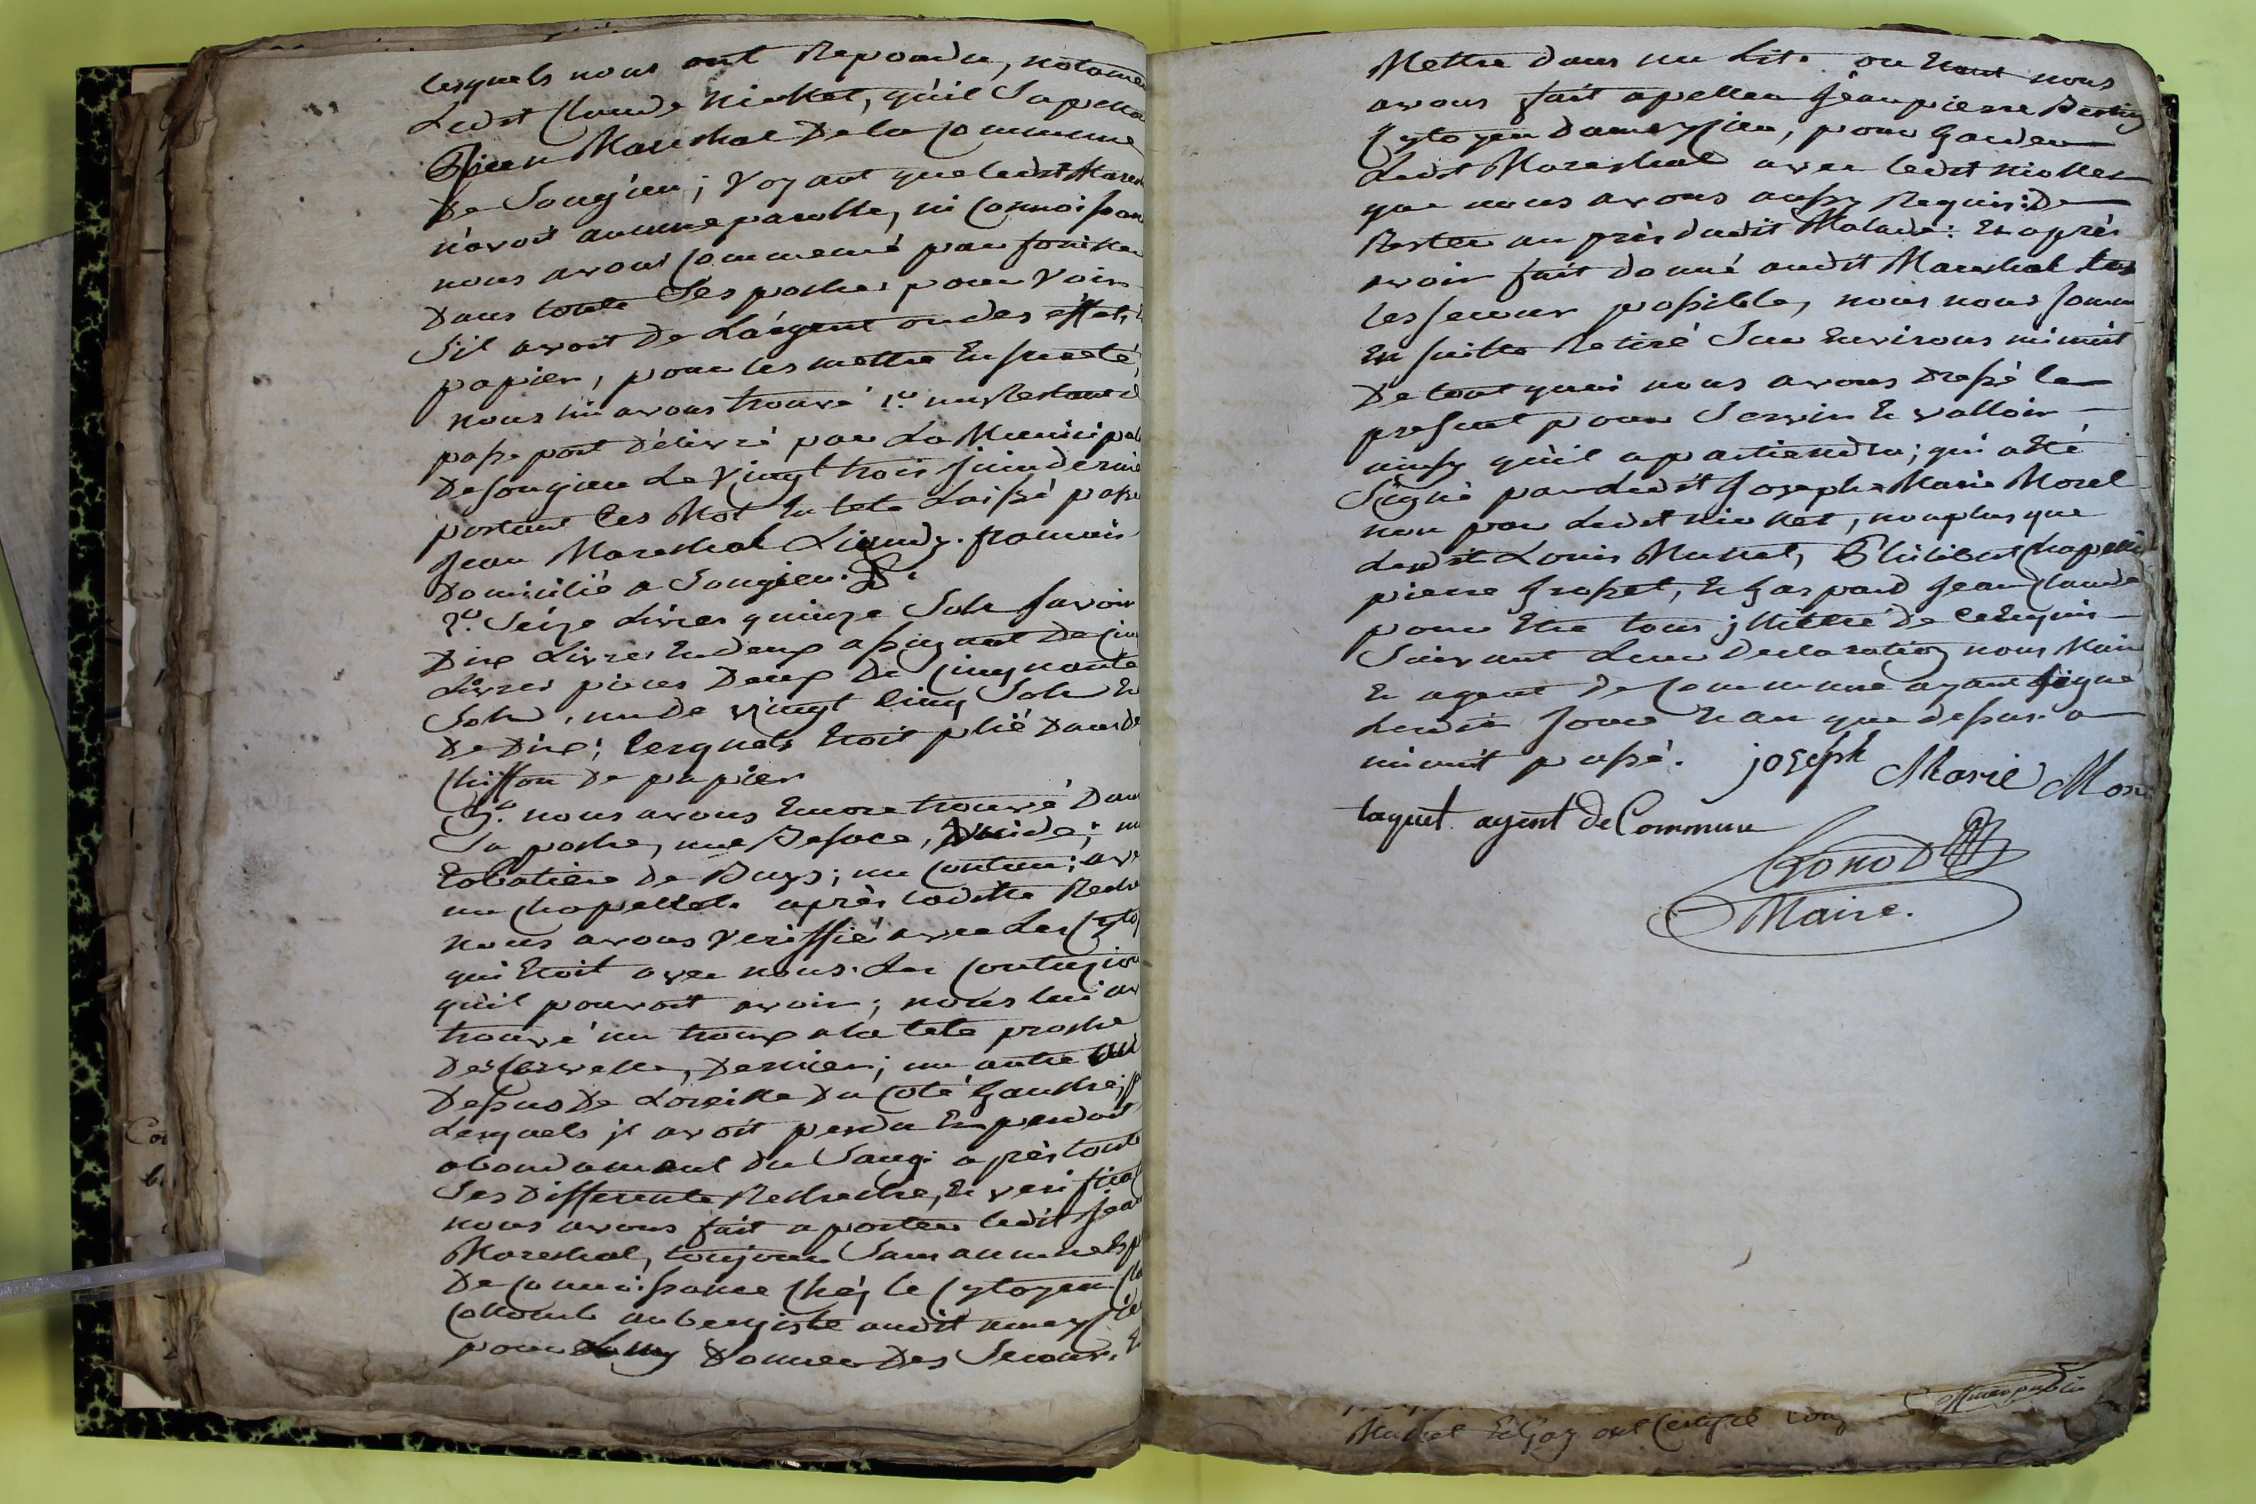 lesquels nous ont Repondu, notame
Ledit Claude Niollet, qu'il Sapello
Jean Mareshal De la Commune
De Songieu; Voyant que ledit Mares
n'avoit aucune parolle, ni Connoissan
nous avons Commencé par fouiller
Dans toute Ses poches pour Voir
S'il avoit De L'argent ou des effet,
papier, pour les mettre En sureté,
nous lui avons trouvé 1º un
passe port Délivré par La Municipal
De songieu Le Vingt trois juin dernier
portant Ces Mot En tete Laissé passe
Jean Mareshal francais
Domicilié a Songieu.
2º. Seize Livres quinze Sols savoir
Dix Livres En deux assignat De cinq
Livres pieces Deux De Cinquante
Sols, un de vingt Cinq Sols Et
De Dix; lesquels Etoit plié Dans de
Chiffon De papier
3º. nous avons Encore trouvé Dans
Sa poche, une Besace, Vuide; un
Tabatiere De Buys; un Couteau; ave
un Chapellet. après laditte Reche
nous avons Veriffié avec Les Cyto
qui Etoit avec nous. Les Contuzion
qu'il pouvoit avoir; nous lui av
trouvé un troux a la tete proche
Des Cervelle, Derrier; un autre au
Dessus De Loreille Du Coté Gauche;
Lesquels jl avoit perdu Et perdoit
abondament du Sang. après toute
Ses Differente Recherche, Et verificat
nous avons fait aporter ledit Jean
Mareshal, toujours Sans aucune
De Connoissance Chéz le Cytoyen
Collomb aubergiste audit ameyzieu
pour Luy Donner Des Secour. Et
Mettre Dans un Lit. ou Etant nous
avons fait apeller Jean pierre
Cytoyen Dameyzieu, pour Garder
Ledit Mareshal avec ledit Niollet
que nous avons aussy Requis De
Rester au près dudit Malade: Et après
avoir fait donné audit Mareshal tous
les secour possible, nous nous somm
En suitte Retiré Sur Environs minuit
De tout quoi nous avons Dressé le
present pour Servir Et valloir
ainsy qu'il apartiendra; qui a Eté
Signé par Ledit Joseph Marie Morel
non par Ledit Niollet, non plus que
Ledit Louis Mullet, Philibert Chapelle
pierre Grosset, Et Gaspard Jean Claude
pour Etre tous jllittré De Ce Enquis
Suivant Leur Declaration nous Maire
Et agent De Commune ayant signé
Ledit Jour Et an que dessus. a
minuit passé. joseph Marie More
taquet agent De Commune
Gonod
Maire.
officier public
Mullet Et Gay ont Certiffié